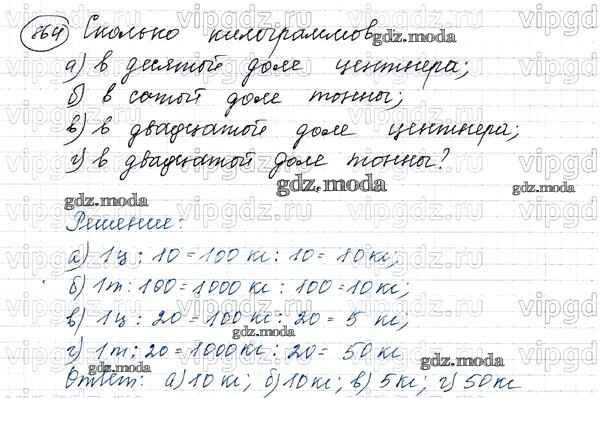 864 Сколько килограммов
а) в десятой доле центнера;
б) в сотой доле тонны;
в) в двадцатой доле центнера;
г) в двадцатой доле тонны?
Решение:
а) 1ц : 10 = 100 кг : 10 = 10 кг;
б) 1т : 100 = 1000 кг : 100 = 10 кг;
в) 1ц : 20 = 100 кг : 20 = 5 кг;
г) 1т : 20 = 1000 кг : 20 = 50 кг
Ответ: а) 10 кг; б) 10 кг; в) 5 кг; г) 50 кг
gdz.moda
gdz.moda
gdz.moda
gdz.moda
gdz.moda
gdz.moda
gdz.moda
vipgdz.ru